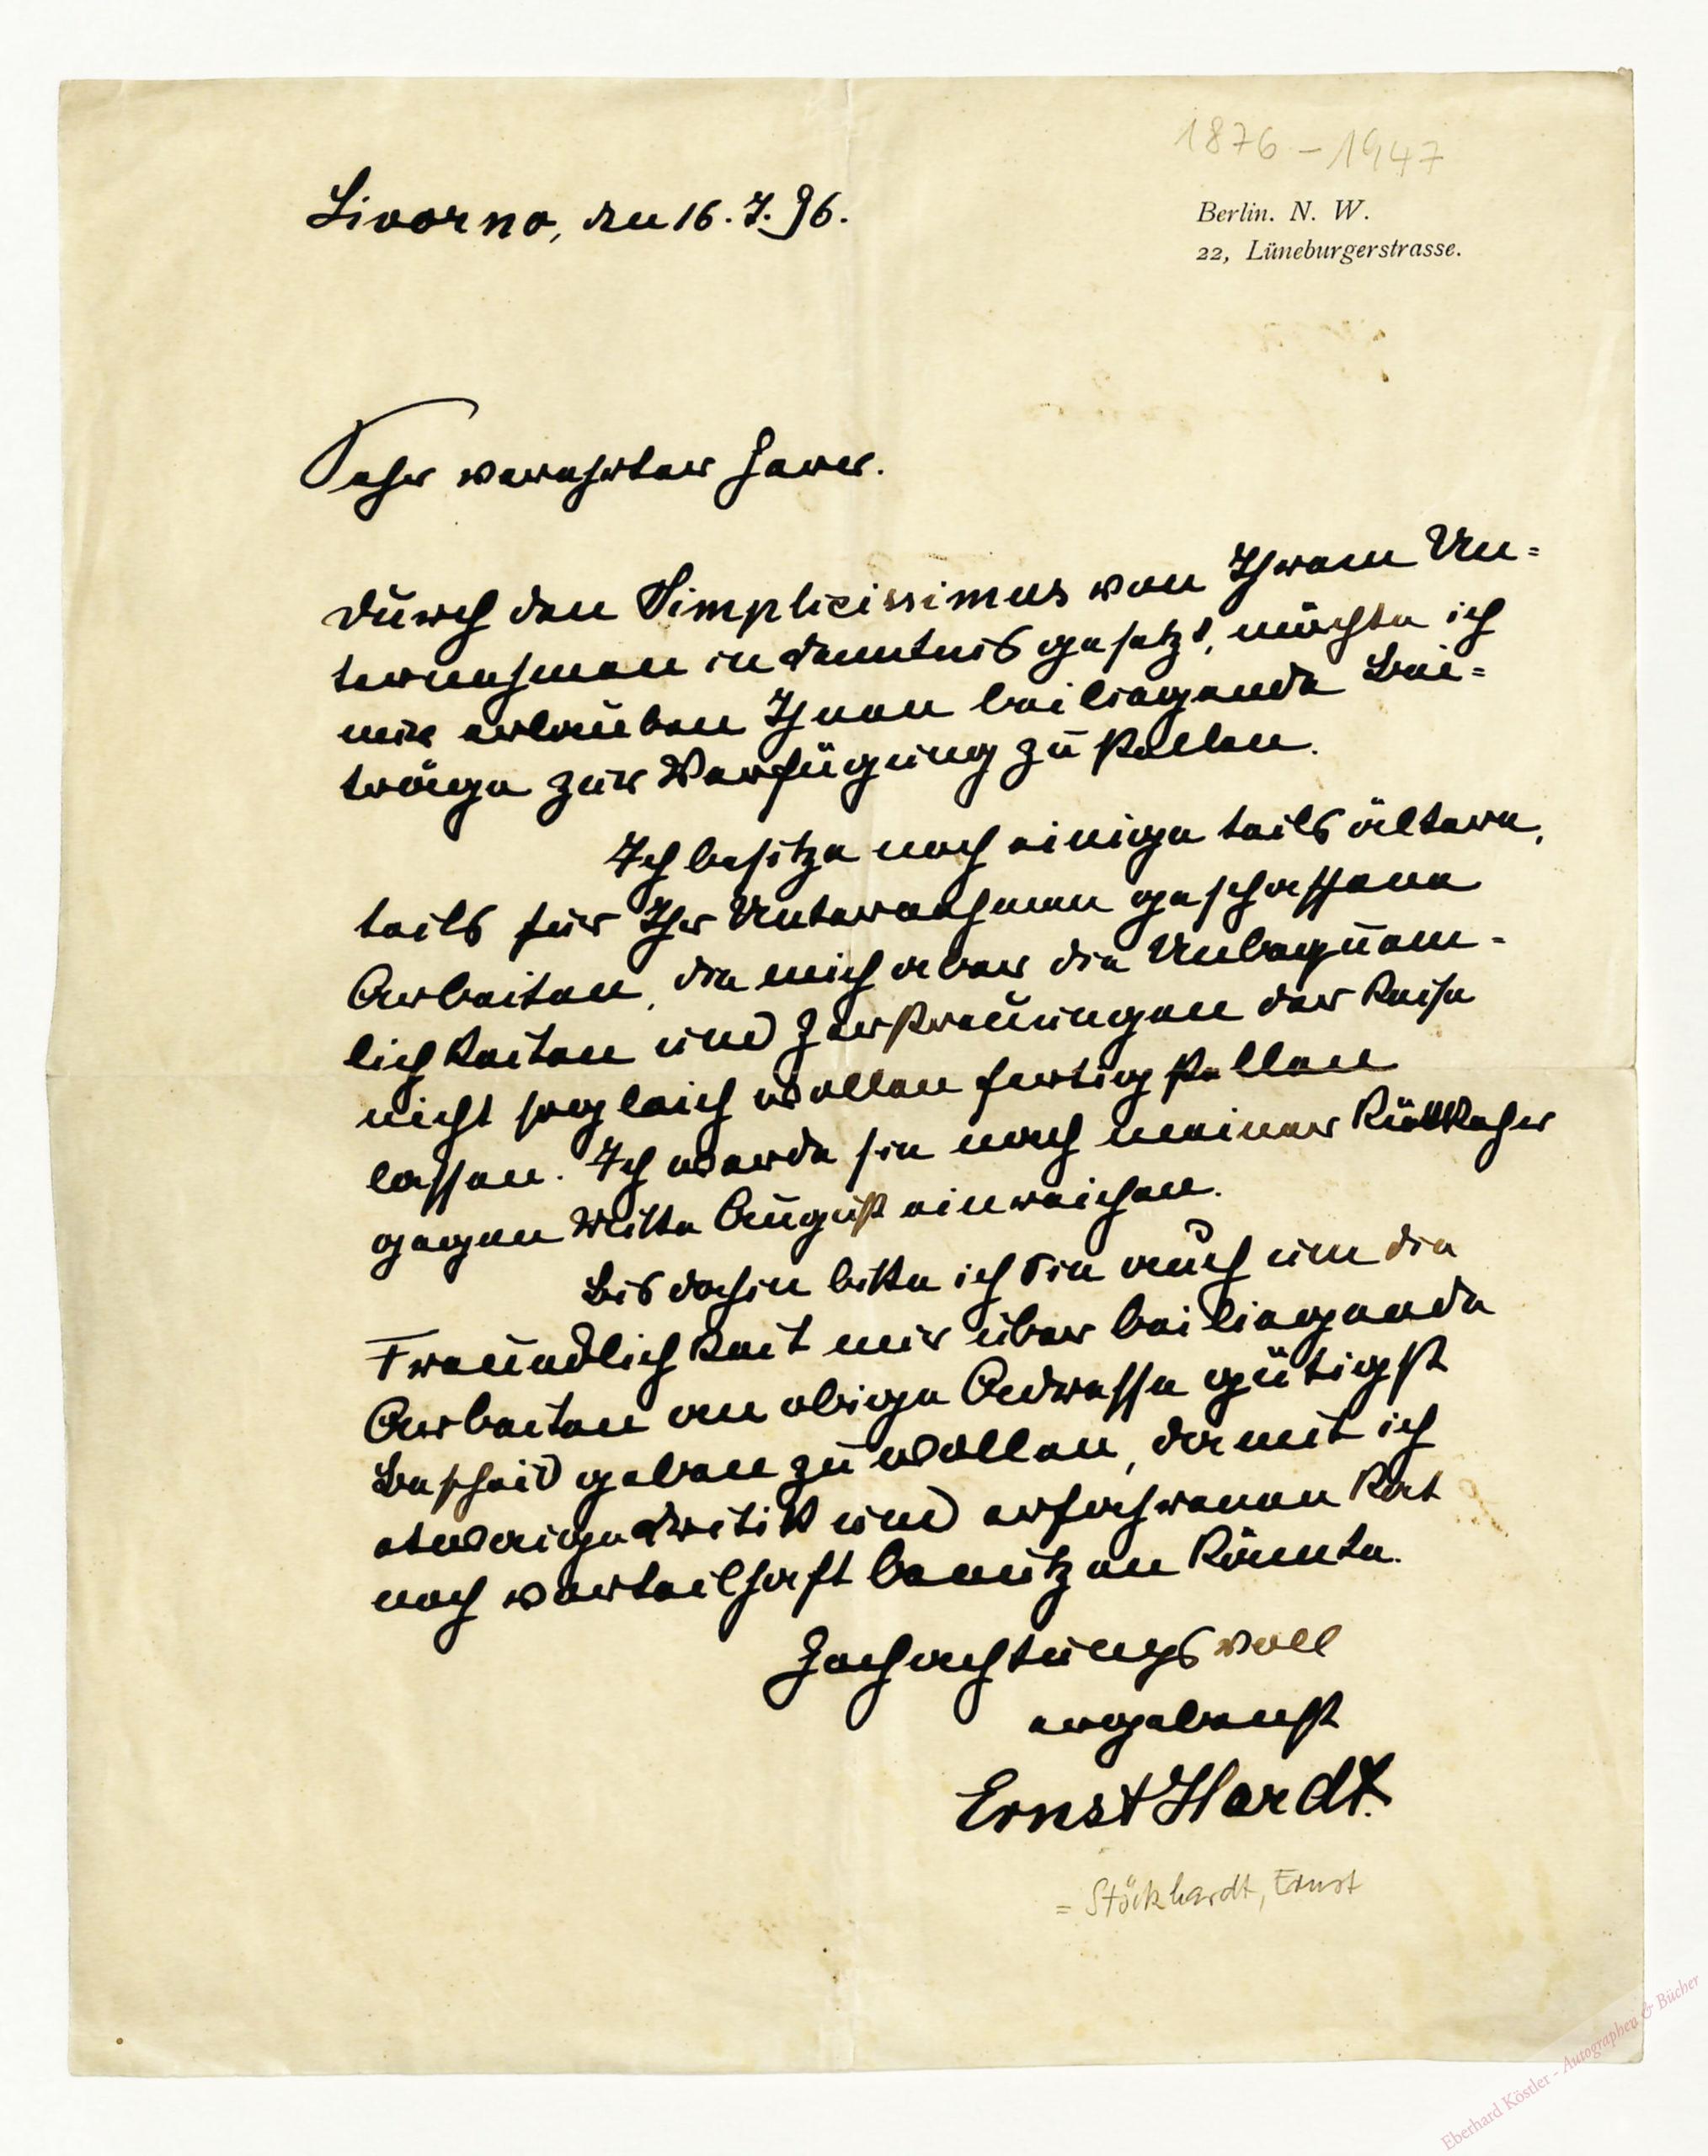 1876-1947
Livorno, den 16. 7. 96.
Berlin. N. W.
22, Lüneburgerstrasse.
Sehr verehrter Herr.
Durch den Simplicissimus von Ihrem Un=
ternehmen in Kenntnis gesetzt, möchte ich
mir erlauben Ihnen beiliegende Bei=
träge zur Verfügung zu stellen.
Ich besitze noch einige teils ältere,
teils für Ihr Unternehmen geschaffene
Arbeiten, die mich aber die Unbequem-
lichkeiten und Zerstreuungen der Reise
nicht sogleich wollen fertig stellen
lassen. Ich werde sie nach meiner Rückkehr
gegen Mitte August einreichen.
Bis dahin bitte ich Sie auch um die
Freundlichkeit mir über beiliegende
Arbeiten an obige Adresse gütigst
Bescheid geben zu wollen, damit ich
etwaige Kritik und erfahrenen Rat
noch vorteilhaft benützen könnte.
Hochachtungsvoll
ergebenst
Ernst Hardt.
= Stöckhardt, Ernst
Eberhard Köstler - Autographen & Bücher